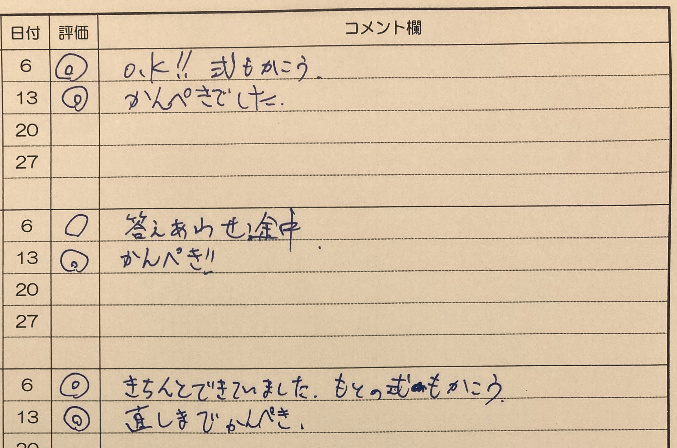 日付 評価 コメント欄
6 ◎ O.K!! 式もかこう.
13 ◎ かんぺきでした.
20
27
6 ○ 答えあわせ途中.
13 ◎ かんぺき!!
20
27
6 ◎ きちんとできていました. もとの式もかこう.
13 ◎ 直しまでかんぺき.
20